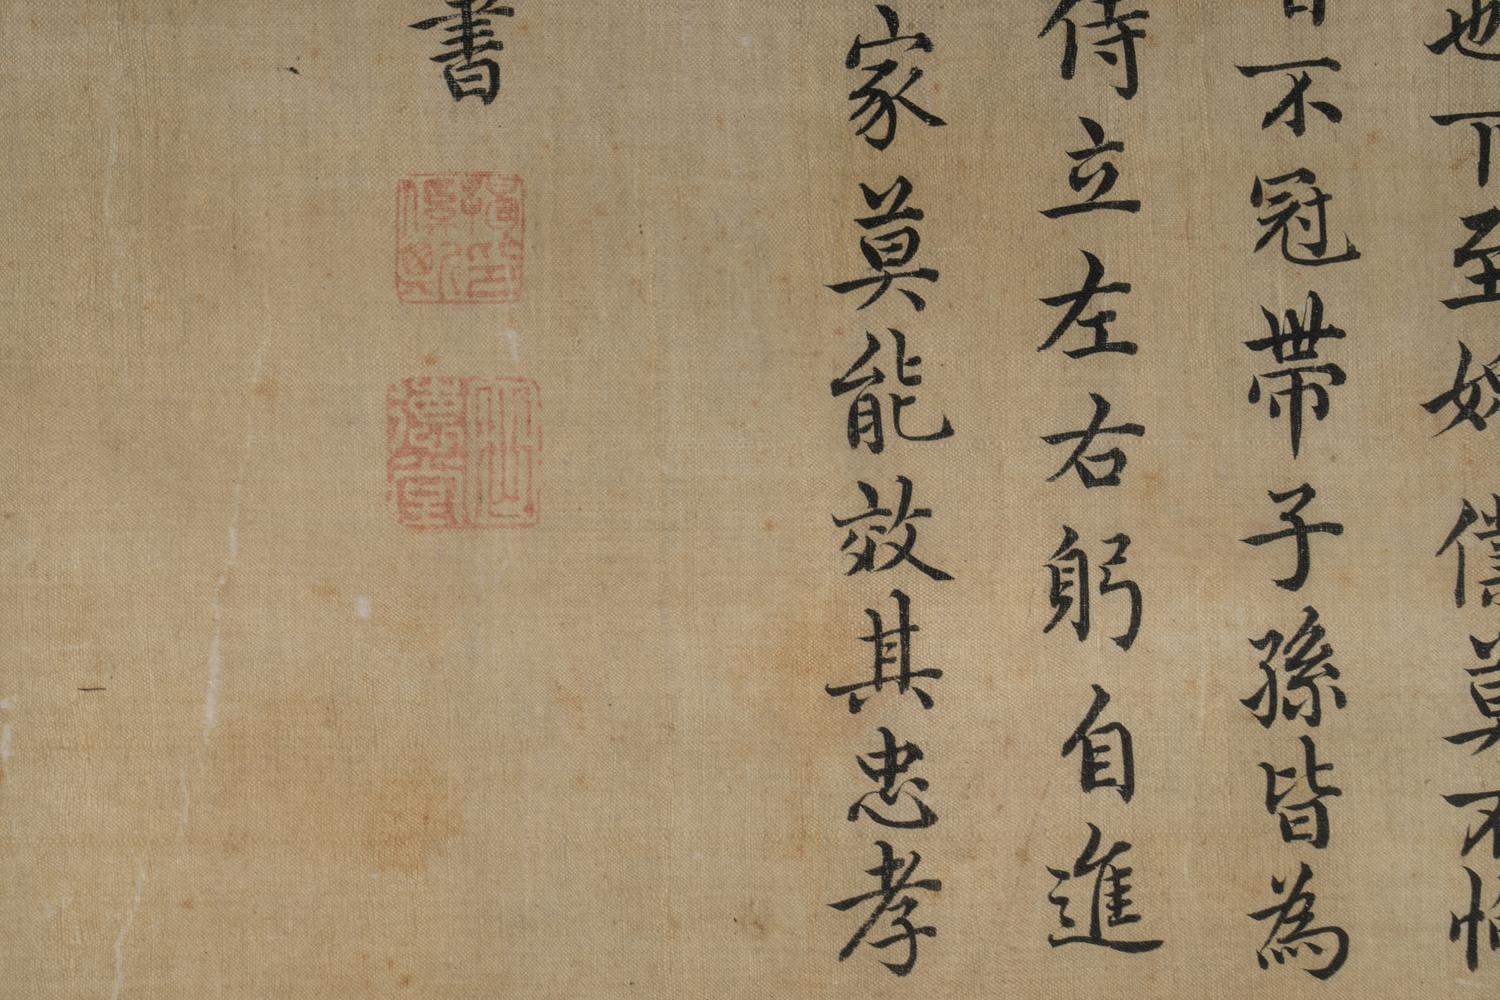 也下至婢僕莫不怡
不冠帶子孫皆為
侍立左右躬自進
家莫能效其忠孝
書